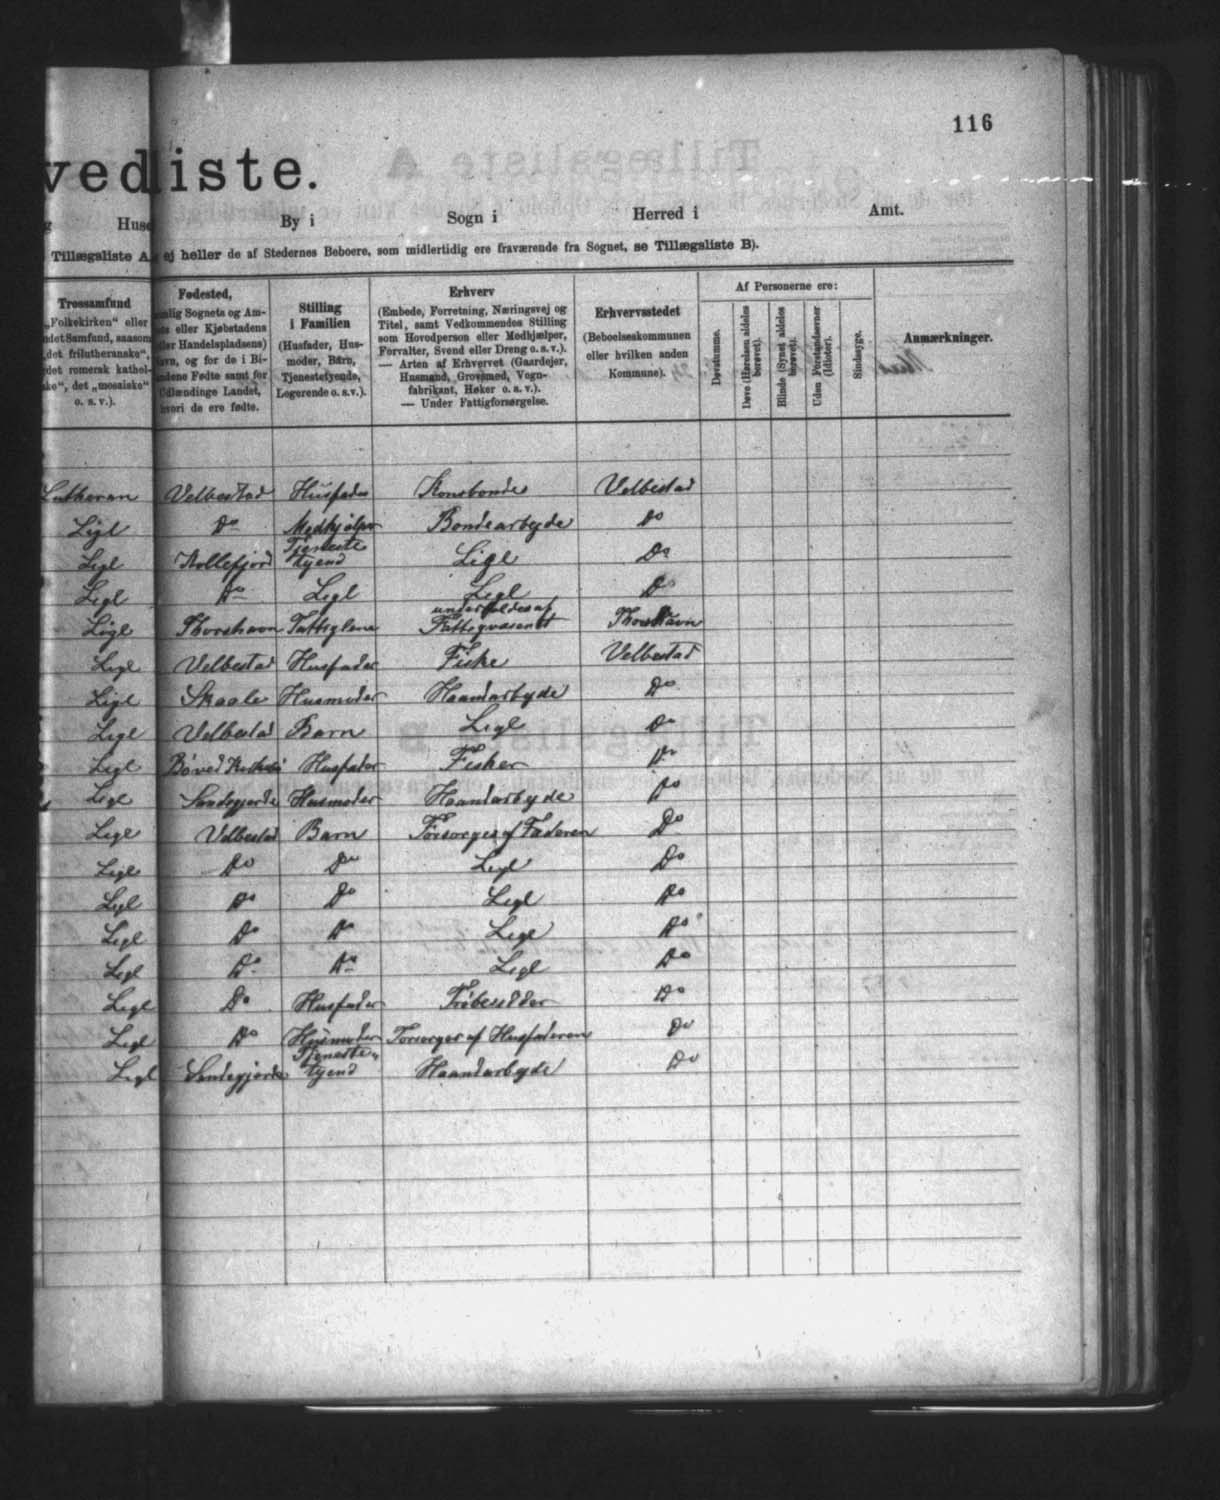 116
vedliste.
Huse By i Sogn i Herred i Amt.
Tillægsliste A, ej heller de af Stedernes Beboere, som midlertidig ere fraværende fra Sognet, se Tillægsliste B).
Trossamfund
„Folkekirken“ eller
andet Samfund, saasom
„det frilutheranske“,
det romersk kathol-
ske“, det „mosaiske“
o. s. v.).
Fødested,
nemlig Sognets og Am-
ts eller Kjøbstadens
eller Handelspladsens)
Navn, og for de i Bi-
landene Fødte samt for
Udlændinge Landet,
hvori de ere fødte.
Stilling
i Familien
(Husfader, Hus-
moder, Barn,
Tjenestetyende,
Logerende o. s. v.).
Erhverv
(Embede, Forretning, Næringsvej og
Titel, samt Vedkommendes Stilling
som Hovedperson eller Medhjælper,
Forvalter, Svend eller Dreng o. s. v.).
— Arten af Erhvervet (Gaardejer,
Husmand, Grovsmed, Vogn-
fabrikant, Høker o. s. v.).
— Under Fattigforsørgelse.
Erhvervsstedet
(Beboelseskommunen
eller hvilken anden
Kommune).
Af Personerne ere:
Døvstumme.
Døve (Hørelsen aldeles
berøvet).
Blinde (Synet aldeles
berøvet).
Uden Forstandsevner
(Idioter).
Sindssyge.
Anmærkninger.
Lutheran Velbestad Husfader Konsbonde Velbestad
Ligl Do Medhjelper Bondearbejde Do
Ligl Kollefjord Tjeneste tyend Ligl Do
Ligl Do Ligl Ligl Do
Ligl Thorshavn Fattiglem underholdes af Fattigvæsenet Thorshavn
Ligl Velbestad Husfader Fiske Velbestad
Ligl Skaale Husmoder Haandarbejde Do
Ligl Velbestad Barn Ligl Do
Ligl Husfader Fisker Do
Ligl Sandsgjerde Husmoder Haandarbejde Do
Ligl Velbestad Barn Forsørges af Faderen Do
Ligl Do Do Ligl Do
Ligl Do Do Ligl Do
Ligl Do Do Ligl Do
Ligl Do Do Ligl Do
Ligl Do Husfader Do
Ligl Do Husmoder Forsørges af Husfaderen Do
Ligl Sandsgjerde Tjeneste tyend Haandarbejde Do